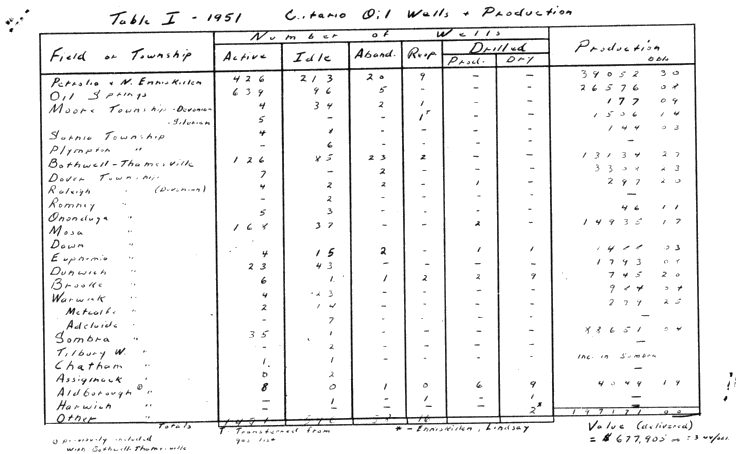 Table I - 1951 Ontario Oil Wells + Production
Number of Wells
Field or Township Active Idle Aband. Reop Drilled Production
Prod. Dry Bbls
Petrolia + N. Enniskillen 426 213 20 9 - - 39052 30
Oil Springs 639 96 5 - - - 26576 08
Moore Township - Devonian 4 34 2 1 - - 177 09
- Silurian 5 - - 1† - - 1506 14
Sarnia Township 4 1 - - - - 144 03
Plympton " - 6 - - - - -
Bothwell-Thamesville 126 85 23 2 - - 13134 27
Dover Township 7 - 2 - - - 23
Raleigh " (Devonian) 4 2 2 - 1 - 297 20
Romney " - 2 - - - - -
Onondaga " 5 3 - - - - 46 11
Mosa " 168 37 - - 2 - 14935 17
Dawn "
Euphemia " 4 15 2 - 1 1 03
Dunwich " 23 43 - - - - 1793
Brooke " 6 1 1 2 2 9 745 20
Warwick " 4 23 - - - -
Metcalfe " 2 14 - - - - 25
Adelaide " - 7 - - - - -
Sombra " 35 1 - - - - 88651 04
Tilbury W. " - 2 - - - -
Chatham " 1 1 - - - - Inc. in Sombra
Assiginack " 0 2 - - - - -
Aldborough ① " 8 0 1 0 6 9 4044 19
Harwich " - 1 - 1 - - -
Other " - - - - - 2* -
Totals 197171 00
① previously included
with Bothwell-Thamesville
† Transferred from
gas list
* - Enniskillen, Lindsay
Value (delivered)
= $677,905